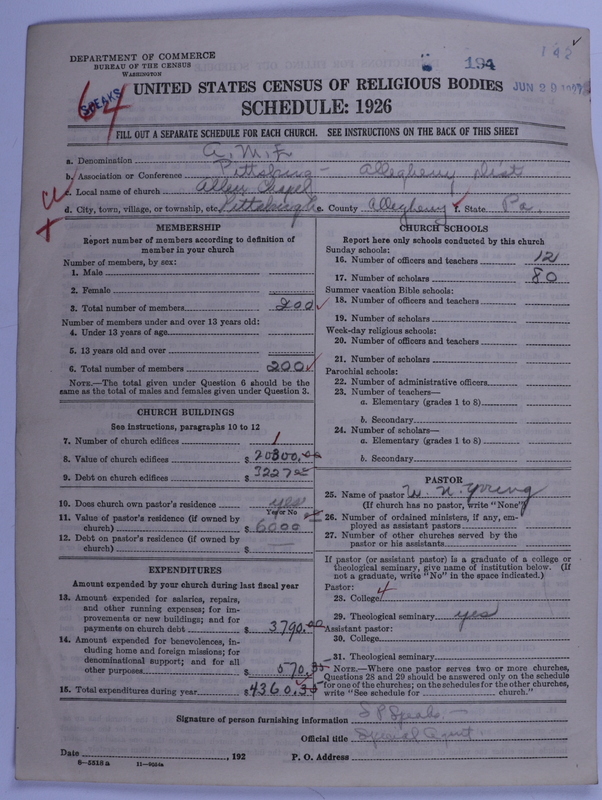 194
142
DEPARTMENT OF COMMERCE
BUREAU OF THE CENSUS
WASHINGTON
SPEAKS
64
UNITED STATES CENSUS OF RELIGIOUS BODIES
SCHEDULE: 1926
FILL OUT A SEPARATE SCHEDULE FOR EACH CHURCH. SEE INSTRUCTIONS ON THE BACK OF THIS SHEET
a. Denomination A. M. E
b. Association or Conference Pittsburg - Allegheny Dist
c. Local name of church Allen Chapel
d. City, town, village, or township, etc. Pittsburgh e. County Allegheny f. State Pa.
MEMBERSHIP
Report number of members according to definition of member in your church
Number of members, by sex:
1. Male
2. Female
3. Total number of members 200
Number of members under and over 13 years old:
4. Under 13 years of age
5. 13 years old and over
6. Total number of members 200
NOTE.—The total given under Question 6 should be the same as the total of males and females given under Question 3.
CHURCH BUILDINGS
See instructions, paragraphs 10 to 12
7. Number of church edifices 1
8. Value of church edifices $
9. Debt on church edifices $ 3227
10. Does church own pastor's residence yes
Yes or No
11. Value of pastor's residence (if owned by church) $ 6000
12. Debt on pastor's residence (if owned by church) $ —
EXPENDITURES
Amount expended by your church during last fiscal year
13. Amount expended for salaries, repairs, and other running expenses; for improvements or new buildings; and for payments on church debt $ 3790.00
14. Amount expended for benevolences, including home and foreign missions; for denominational support; and for all other purposes $
15. Total expenditures during year $ 4360.35
CHURCH SCHOOLS
Report here only schools conducted by this church
Sunday schools:
16. Number of officers and teachers 12
17. Number of scholars 80
Summer vacation Bible schools:
18. Number of officers and teachers
19. Number of scholars
Week-day religious schools:
20. Number of officers and teachers
21. Number of scholars
Parochial schools:
22. Number of administrative officers
23. Number of teachers—
a. Elementary (grades 1 to 8)
b. Secondary
24. Number of scholars—
a. Elementary (grades 1 to 8)
b. Secondary
PASTOR
25. Name of pastor W. N.
(If church has no pastor, write "None")
26. Number of ordained ministers, if any, employed as assistant pastors
27. Number of other churches served by the pastor or his assistants
If pastor (or assistant pastor) is a graduate of a college or theological seminary, give name of institution below. (If not a graduate, write "No" in the space indicated.)
Pastor:
28. College
29. Theological seminary yes
Assistant pastor:
30. College
31. Theological seminary
NOTE.—Where one pastor serves two or more churches, Questions 28 and 29 should be answered only on the schedule for one of the churches; on the schedules for the other churches, write "See schedule for ______ church."
Signature of person furnishing information S P Speaks
Official title Special Agent
Date ______, 192 P. O. Address
8—5516a 11—9034a